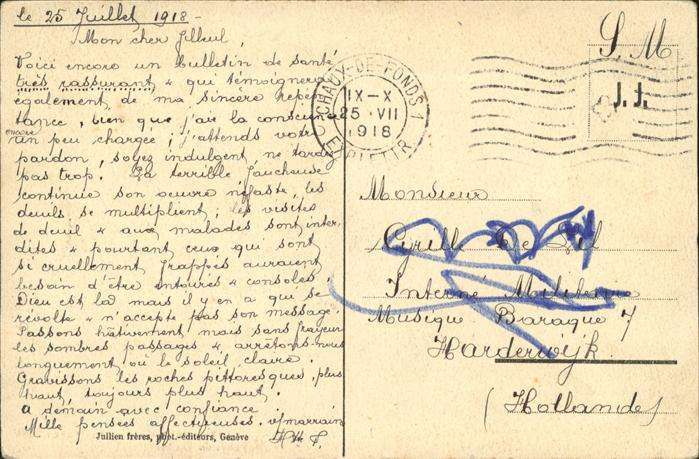 le 25 Juillet 1918 -
Mon cher filleul,
Voici encore un bulletin de santé
très rassurant & qui témoignera
également de ma sincère repen-
tance, bien que j'aie la conscience
encore
un peu chargée; j'attends votre
pardon, soyez indulgent, ne tardez
pas trop. La terrible faucheuse
continue son oeuvre néfaste, les
deuils se multiplient; les visites
de deuil & aux malades sont inter-
dites & pourtant ceux qui sont
si cruellement frappés auraient
besoin d'être entourés & consolés.
Dieu est là mais il y en a qui se
révolte & n'accepte pas son message.
Passons hâtivement mais sans frayeur
les sombres passages & arrêtons-nous
longuement où le soleil claire.
Gravissons les roches pittoresques, plus
haut, toujours plus haut.
A demain avec confiance.
Mille pensées affectueuses. v/marraine
Jullien frères, phot.-éditeurs, Genève
S.M
J.J.
CHAUX-DE-FONDS 1
IX-X
25.VII
1918
Monsieur
Cyrill De
Interné Militaire
Musique Baraque 7
Harderwijk
(Hollande)